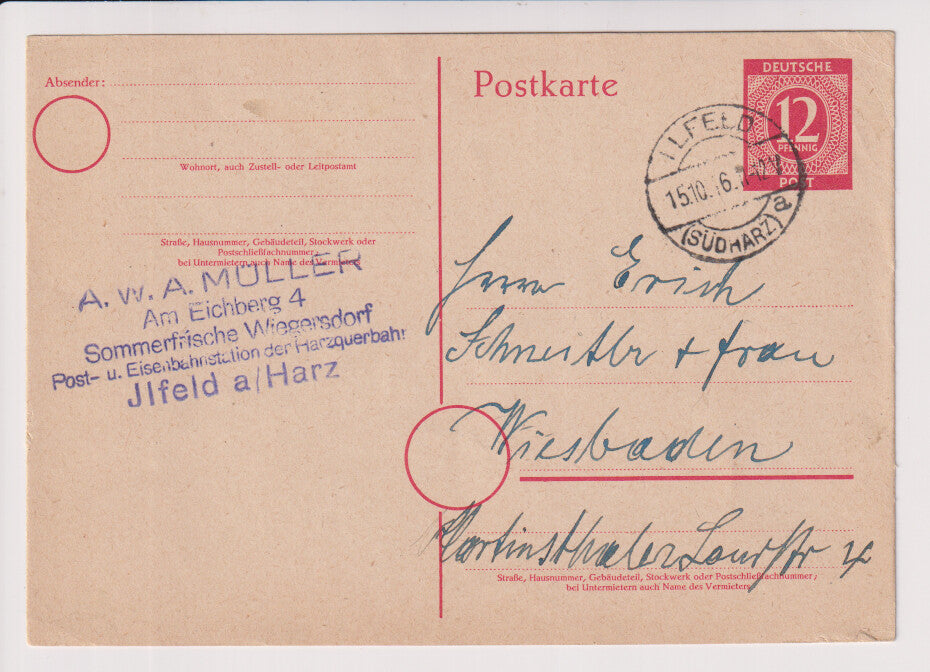 Absender:
Wohnort, auch Zustell- oder Leitpostamt
Straße, Hausnummer, Gebäudeteil, Stockwerk oder
Postschließfachnummer;
bei Untermietern auch Name des Vermieters
A. W. A. MÜLLER
Am Eichberg 4
Sommerfrische Wiegersdorf
Post- u. Eisenbahnstation der Harzquerbahn
Jlfeld a/Harz
Postkarte
DEUTSCHE
12
PFENNIG
POST
ILFELD
15.10. 6.
a
(SÜDHARZ)
Herrn Erich
Schneitler + Frau
Wiesbaden
Martinsthaler
Straße, Hausnummer, Gebäudeteil, Stockwerk oder Postschließfachnummer;
bei Untermietern auch Name des Vermieters